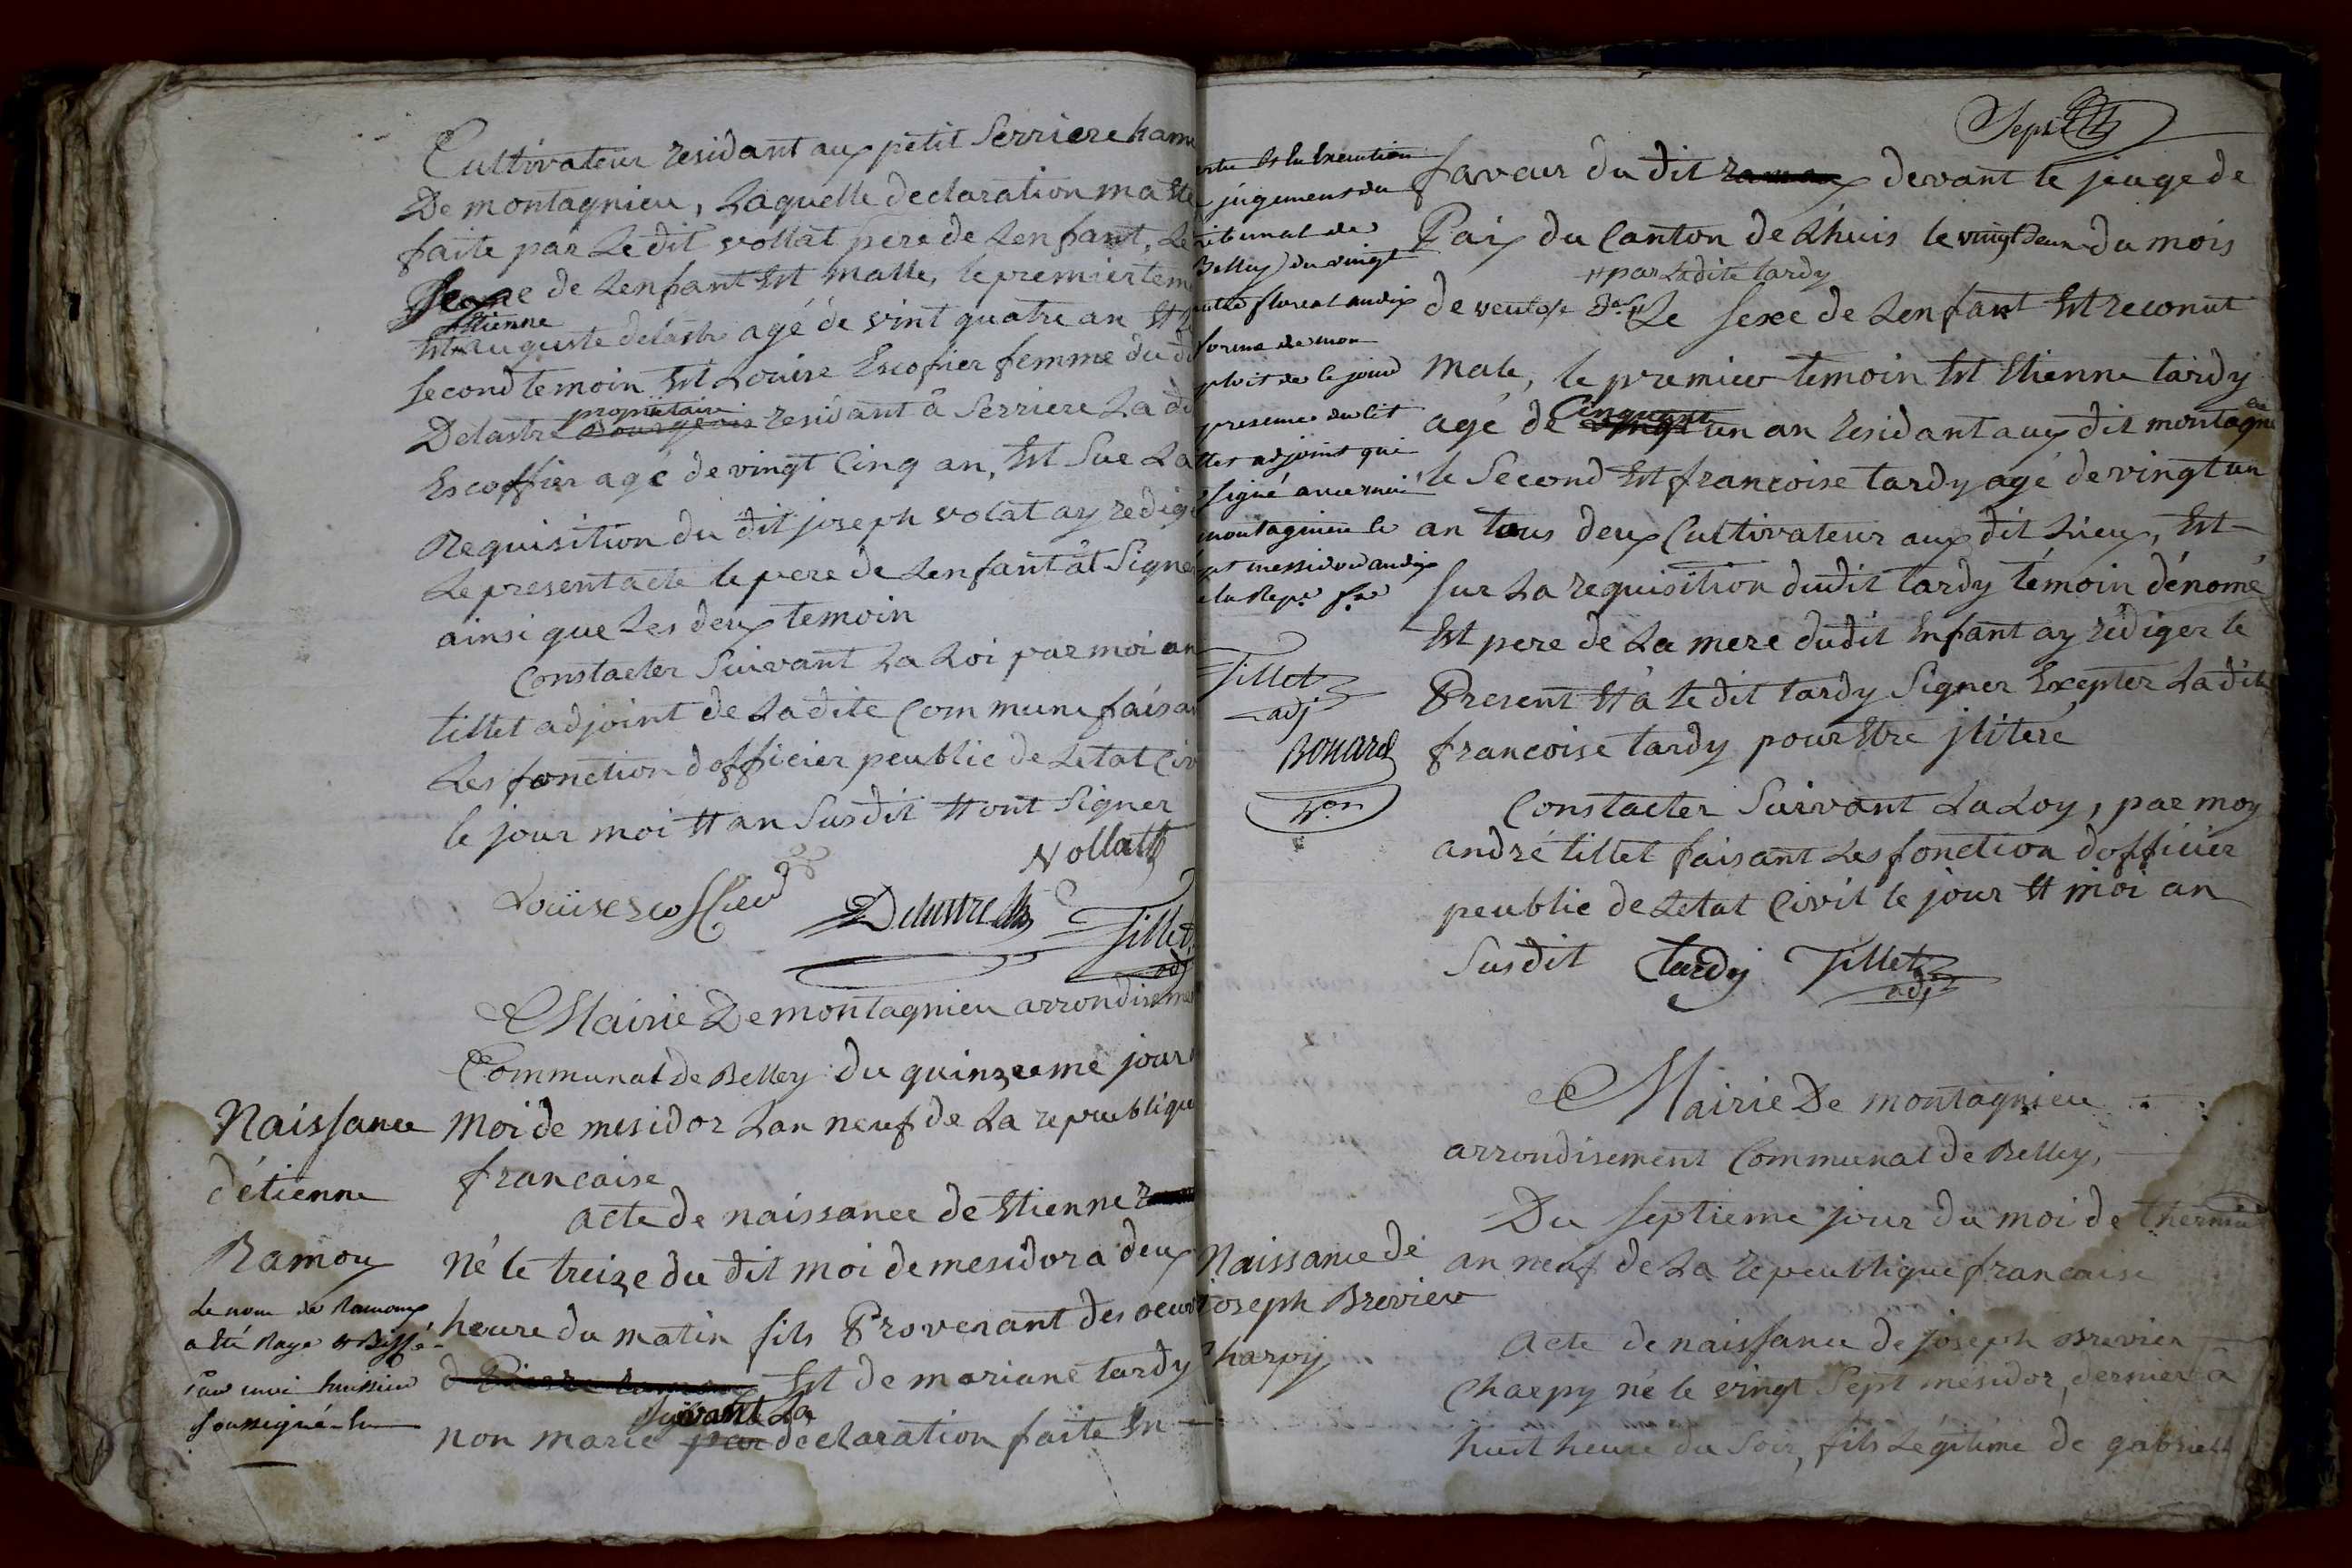 Cultivateur residant aux petit Serriere hame
De montagnieu, Laquelle declaration ma Ete
faite par Le dit vollat pere de Lenfant, Le
Sexe de Lenfant Est malle, le premier tem
Etienne
Est auguste delastre agé de vint quatre an Et
Second temoin Est Louise Escofier femme du di
propriétaire
Delastre Bourgeois residant à Serriere La di
Escoffier agé de vingt Cinq an, Est Sue La
Requisition du dit joseph volat ay redigé
Le present acte le pere de Lenfant àt Signé
ainsi que Les deux temoin
Constacter Suivant La Loi par moi an
tillet adjoint de La dite Commune faisa
Les fonction dofficier peublic de Letat Civ
le jour moi Et an Susdit Et ont Signer
Vollat
Louise escoffier Delastre Tillet
adj
Mairie De montagnieu arrondiseme
Communal de Belley du quinzeeme jour
Naissance
moi de mesidor Lan neuf de La republique
francaise
d'étienne
acte de naissance de Etienne
Ramoux
Né le treize du dit moi de mesidor a deux
Le nom de Ramoux
a été Rayé & Biffé
par moi huissier
soussigné En
heure du matin fils Provenant des oeuv
d Pierre ramoux Est de mariane tardy
suivant La
non marie par declaration faite En
Sept
vertu & En Execution
jugement du
tribunal de
Belley du vingt
quatre floreal an dix
forme de mon
exploit de ce jour
presence du cit
Tillet adjoint qui
signé avec moi
montagnieu le
sept messidor an dix
de la Repe fse
Tillet
adj
Bonard
hon
faveur du dit ramoux devant le jeuge de
Paix du Canton de Lhuis le vingt deux du mois
par Ladite tardy
de ventose Der Le Sexe de Lenfant Est reconut
male, le premier temoin Est Etienne tardy
Cinquant
agé de vingt un an residant aux dit montagnieu
le Second Est francoise tardy agé de vingt un
an tous deux Cultivateur aux dit Lieux, Est
Sur La requisition dudit tardy témoin dénomé
Est pere de La mere dudit Enfant ay rédiger le
Present Et à le dit tardy Signer Excepter La dite
francoise tardy pour Etre jlitéré
Constacter Suivant La Loy, par moy
andré tillet faisant Les fonction dofficier
peublic de Letat Civil le jour Et moi an
Susdit tardy Tillet
adj
Mairie De montagnieu
arrondisement Communal de Belley,
Du Septieme jour du moi de thermid
Naissance de
joseph Brevier
Charpy
an neuf de La republique francaise
Acte de naissance de joseph Brevier
Charpy né le vingt Sept mésidor, dernier à
huit heure du Soir, fils Légitime de gabriell